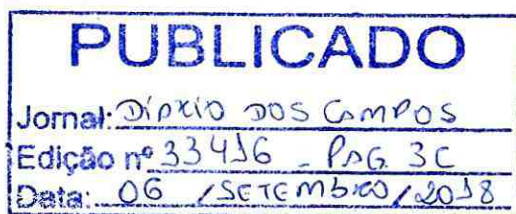 PUBLICADO
Jornal: DIÁRIO DOS CAMPOS
Edição nº 33416 - PAG. 3C
Data: 06 / SETEMBRO / 2018